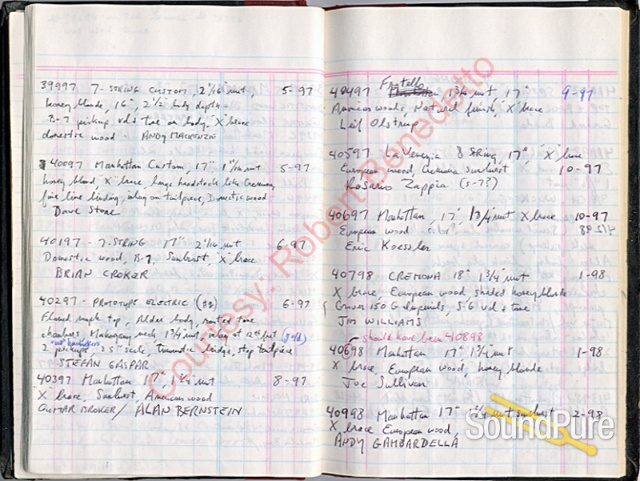 39997 7-STRING CUSTOM, 2 1/16" nut 5-97
honey blonde, 16", 2 1/2" body depth
B-7 pickup vol & tone on body. X brace
domestic wood - ANDY MACKENZIE
40097 Manhattan Custom, 17" nut 5-97
honey blonde X brace large headstock like Germany,
fine line binding, inlay on tailpiece, Domestic wood
Dave Stone
40197 - 7-STRING 17" 2 1/16 nut 6-97
Domestic wood, B-7, Sunburst, X brace
BRIAN CROKER
40297 - PROTOTYPE ELECTRIC 6-97
maple top, Alder body, tone
chambers, Mahogany neck 1 3/4 nut, inlay at 12th fret
pickups scale, bridge, stop tailpiece
STEFAN GASPAR
40397 Manhattan 17", 1 3/4 nut 8-97
X brace, Sunburst American wood
GUITAR BROKER / ALAN BERNSTEIN
40497 Fratello 1 3/4 nut 17" 9-97
American woods, Natural finish, X brace
Leif Olstrup
40597 La Venezia 8 STRING, 17", X brace
European wood, Cremona Sunburst 10-97
Rosario Zappia (s-7?)
40697 Manhattan, 17" 1 3/4" nut X brace 10-97
European wood
Eric Koessler
40798 CREMONA 18" 1 3/4" nut 1-98
X brace, European wood shaded honey blonde
Grover 150 G Imperials, S-6 vol & tone
JIM WILLIAMS
should have been 40898
40698 Manhattan 17" 1 3/4" nut 1-98
X brace, European wood, honey blonde
Joe Sullivan
40998 Manhattan 17" nut sunburst 2-98
X brace European wood
ANDY GAMBARDELLA
Courtesy: Robert Benedetto
SoundPure